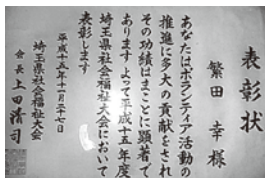 表彰状
繁田 幸 様
あなたはボランティア活動の
推進に多大の貢献をされ
その功績はまことに顕著で
あります よって平成十五年度
埼玉県社会福祉大会において
表彰します
平成十五年十一月二十七日
埼玉県社会福祉大会
会長 上田清司